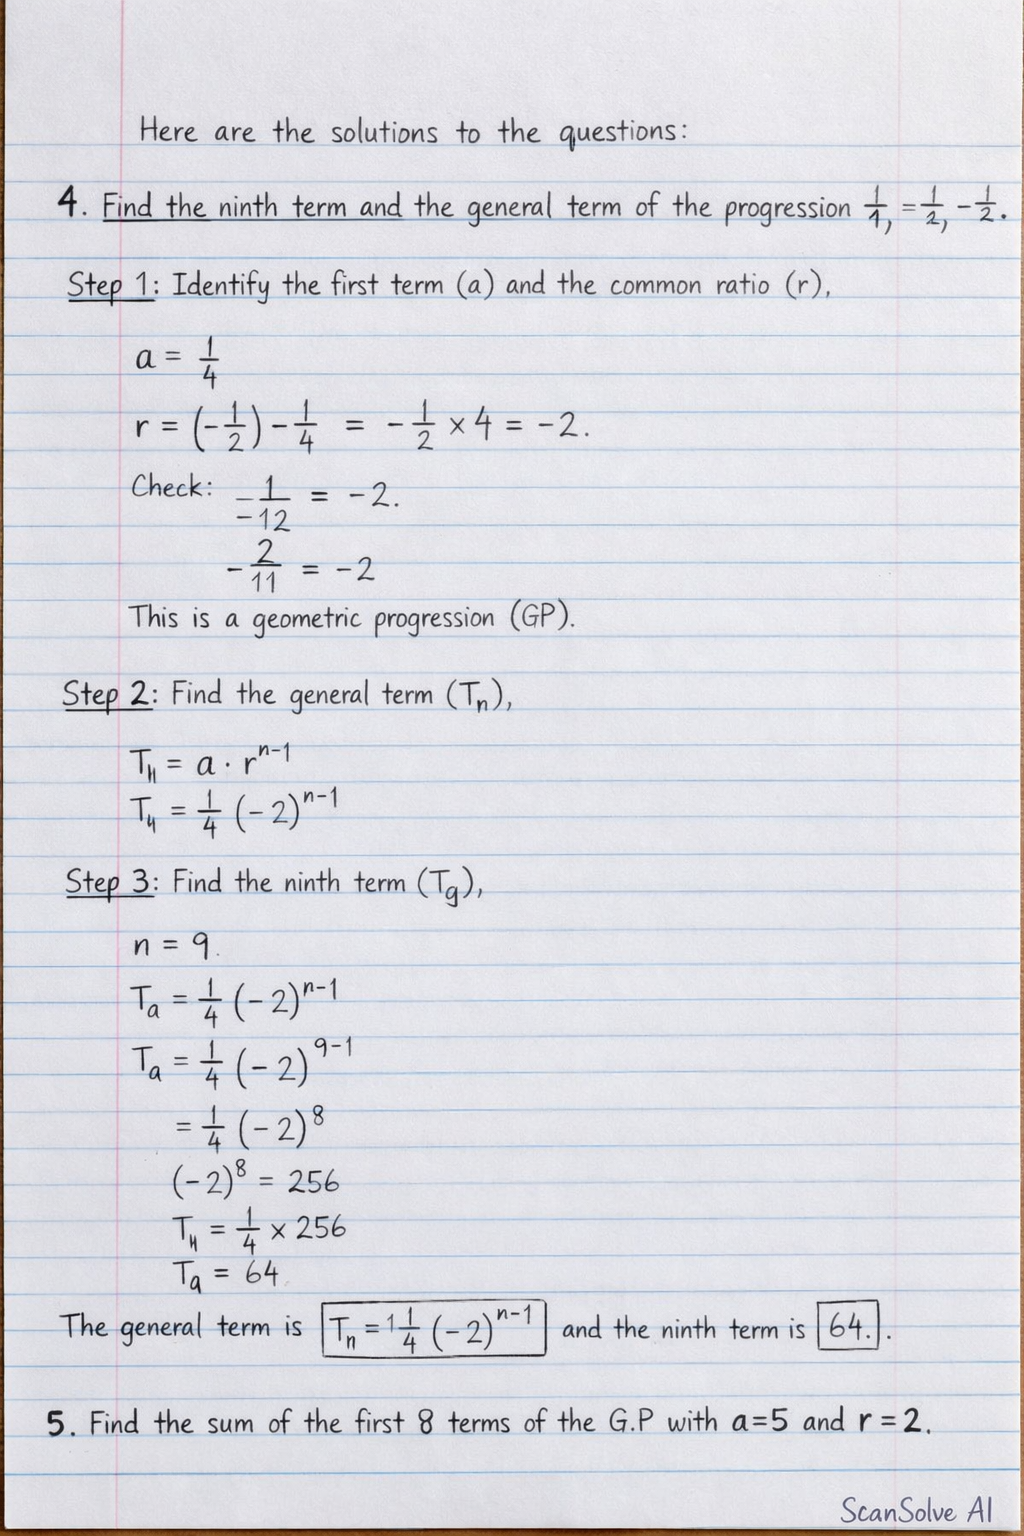 Here are the solutions to the questions:
4. Find the ninth term and the general term of the progression 1/1, =1/2, -1/2.
Step 1: Identify the first term (a) and the common ratio (r),
a = 1/4
r = (-1/2) - 1/4 = -1/2 × 4 = -2.
Check: -1/-12 = -2.
-2/11 = -2
This is a geometric progression (GP).
Step 2: Find the general term (Tₙ),
T_H = a · r^(n-1)
T_4 = 1/4 (-2)^(n-1)
Step 3: Find the ninth term (T_g),
n = 9.
T_a = 1/4 (-2)^(n-1)
T_a = 1/4 (-2)^(9-1)
= 1/4 (-2)^8
(-2)^8 = 256
T_H = 1/4 × 256
T_a = 64
The general term is Tₙ = 1 1/4 (-2)^(n-1) and the ninth term is 64..
5. Find the sum of the first 8 terms of the G.P with a=5 and r=2.
ScanSolve AI